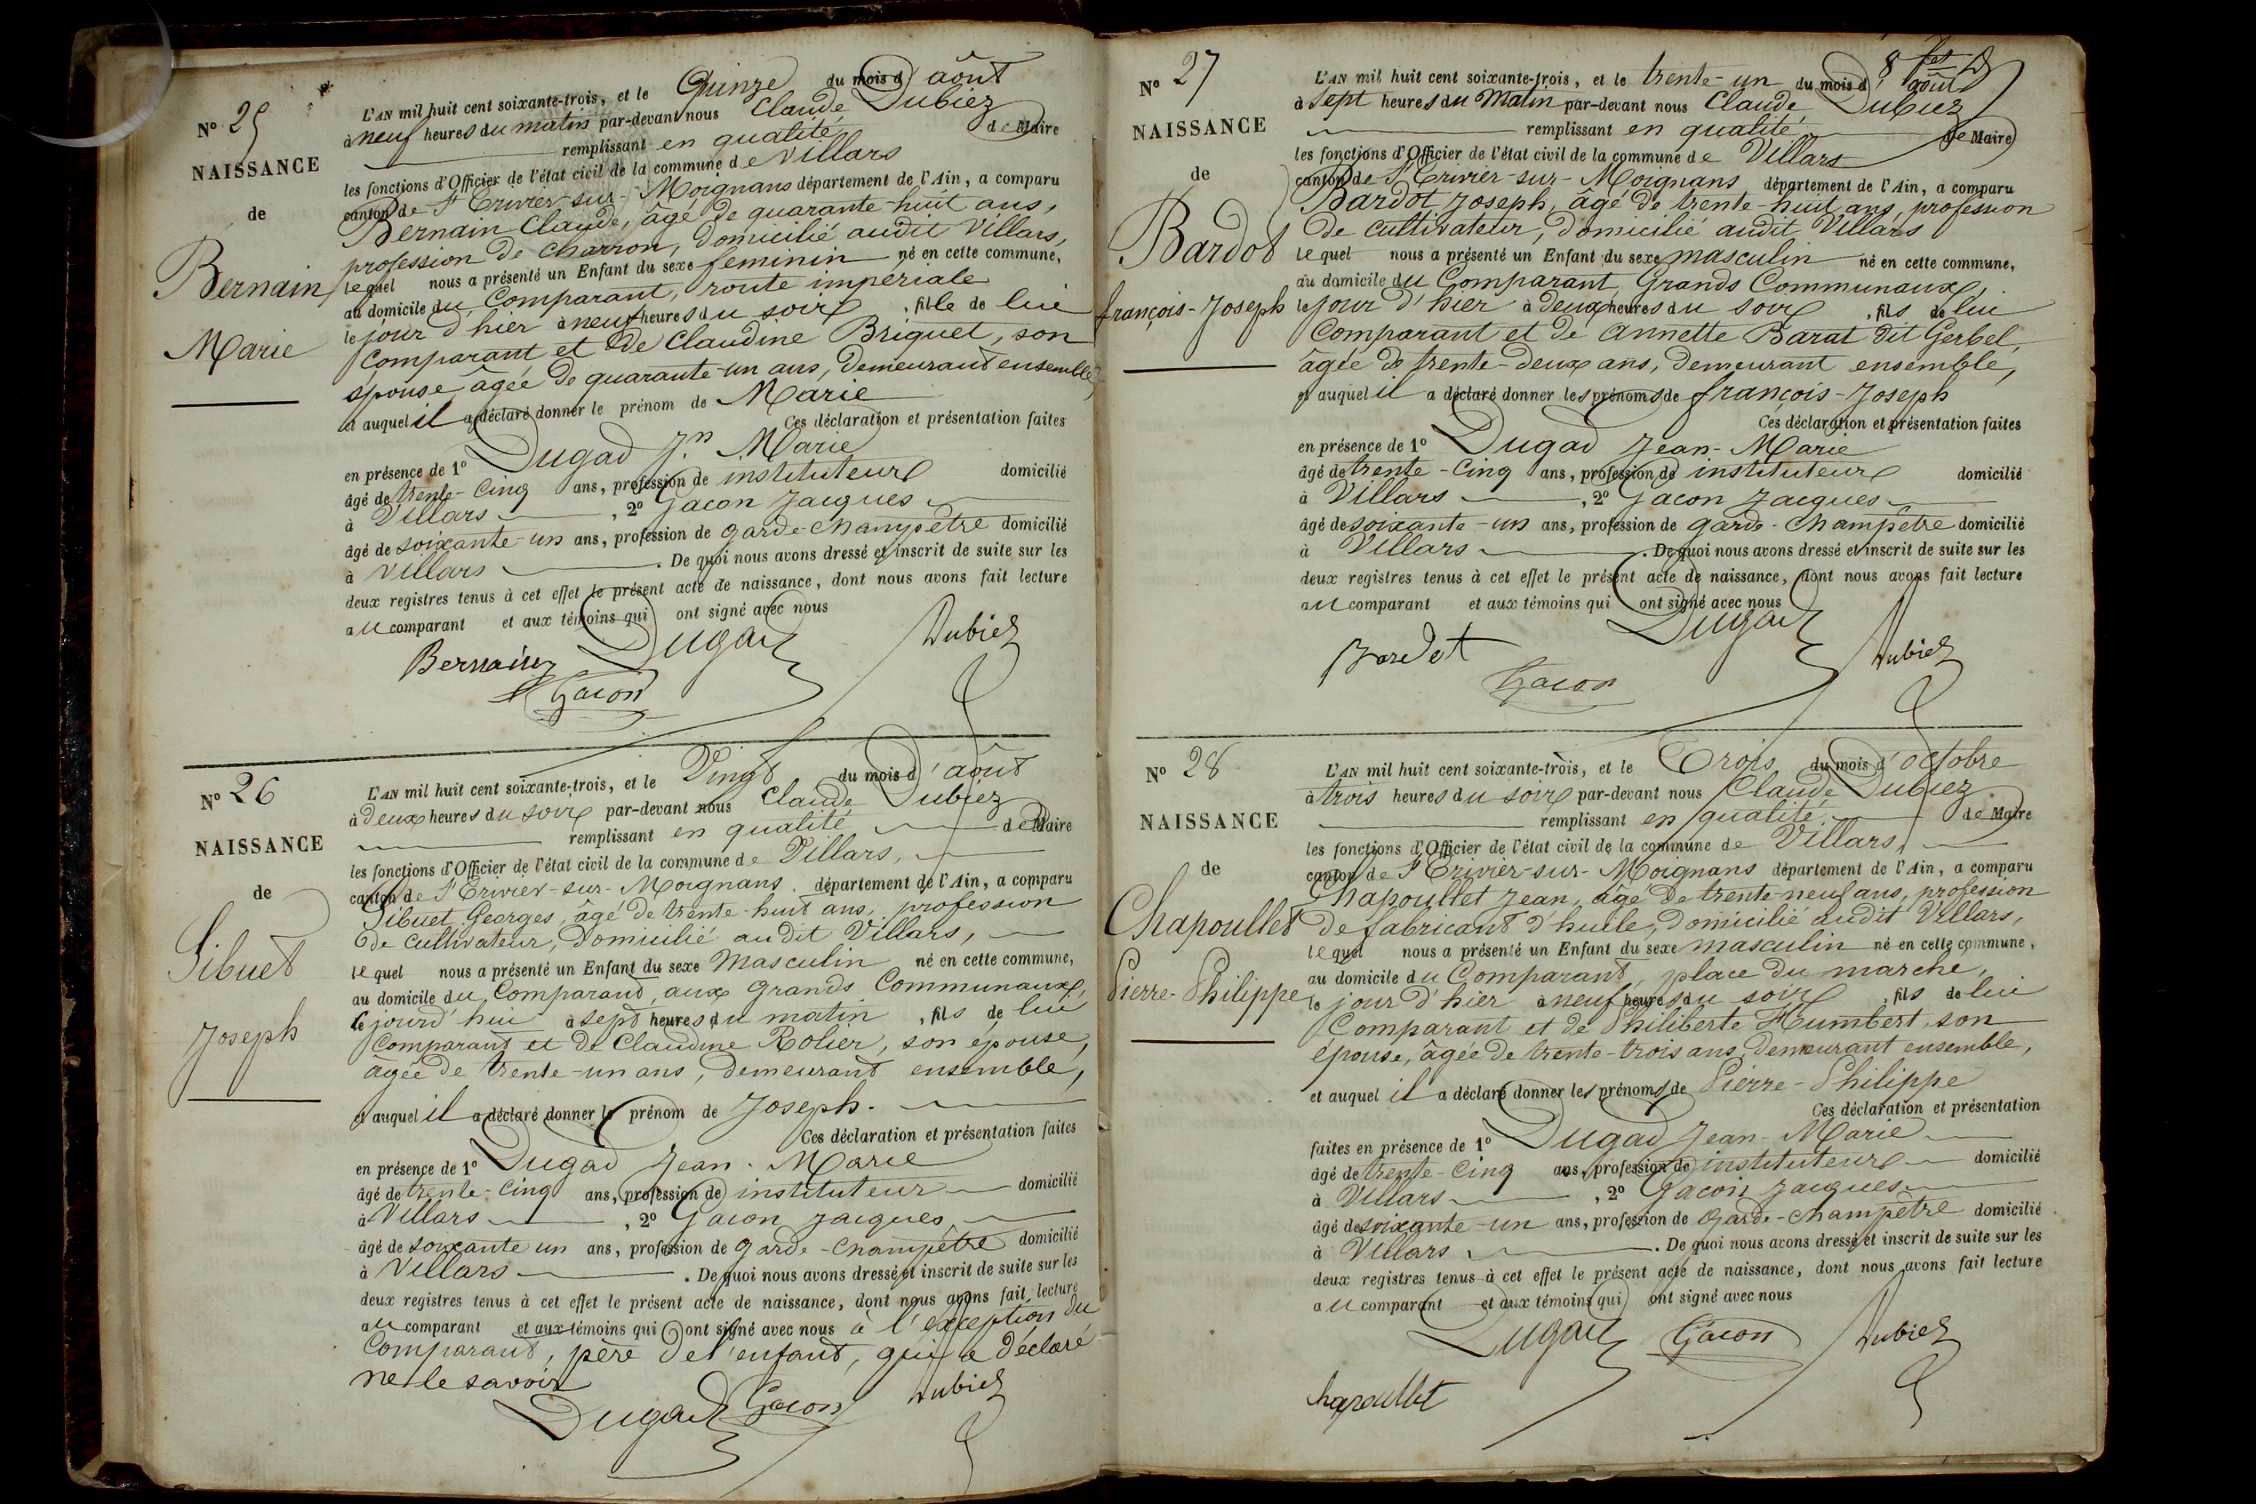 N° 25
NAISSANCE
de
Bernain
Marie
L'AN mil huit cent soixante-trois, et le Quinze du mois d' août
à neuf heures du matin par-devant nous Claude Dubiez
remplissant en qualité de Maire
les fonctions d'Officier de l'état civil de la commune de Villars
canton de St Trivier-sur-Moignans département de l'Ain, a comparu
Bernain Claude, âgé de quarante-huit ans,
profession de charron, domicilié audit Villars,
lequel nous a présenté un Enfant du sexe feminin né en cette commune,
au domicile du Comparant, route impériale
le jour d'hier à neuf heures du soir, fille de lui
comparant et de Claudine Briquet, son
épouse âgée de quarante-un ans, demeurant ensemble,
et auquel il a déclaré donner le prénom de Marie
Ces déclaration et présentation faites
en présence de 1° Dugad Jn Marie
âgé de trente-cinq ans, profession de instituteur domicilié
à Villars, 2° Gacon Jacques
âgé de soixante-un ans, profession de garde-champêtre domicilié
à Villars. De quoi nous avons dressé et inscrit de suite sur les
deux registres tenus à cet effet le présent acte de naissance, dont nous avons fait lecture
au comparant et aux témoins qui ont signé avec nous
Bernain Dugad Dubiez
Gacon
N° 26
NAISSANCE
de
Sibuet
Joseph
L'AN mil huit cent soixante-trois, et le Vingt du mois d' août
à deux heures du soir par-devant nous Claude Dubiez
remplissant en qualité de Maire
les fonctions d'Officier de l'état civil de la commune de Villars,
canton de St Trivier-sur-Moignans département de l'Ain, a comparu
Sibuet Georges, âgé de trente-huit ans, profession
de cultivateur, domicilié audit Villars,
lequel nous a présenté un Enfant du sexe Masculin né en cette commune,
au domicile du Comparant, aux grands Communaux,
le jourd'hui à sept heures du matin, fils de lui
comparant et de Claudine Rolier, son épouse,
âgée de trente-un ans, demeurant ensemble,
et auquel il a déclaré donner le prénom de Joseph.
Ces déclaration et présentation faites
en présence de 1° Dugad Jean-Marie
âgé de trente-cinq ans, profession de instituteur domicilié
à Villars, 2° Gacon Jacques
âgé de soixante un ans, profession de garde-champêtre domicilié
à Villars. De quoi nous avons dressé et inscrit de suite sur les
deux registres tenus à cet effet le présent acte de naissance, dont nous avons fait lecture
au comparant et aux témoins qui ont signé avec nous à l'exception du
Comparant, père de l'enfant, qui a déclaré
ne le savoir
Dugad Gacon Dubiez
N° 27
NAISSANCE
de
Bardot
françois-Joseph
L'AN mil huit cent soixante-trois, et le trente-un du mois d' août
à sept heures du Matin par-devant nous Claude Dubiez
remplissant en qualité de Maire
les fonctions d'Officier de l'état civil de la commune de Villars
canton de St Trivier-sur-Moignans département de l'Ain, a comparu
Bardot Joseph, âgé de trente-huit ans, profession
de cultivateur, domicilié audit Villars
lequel nous a présenté un Enfant du sexe masculin né en cette commune,
au domicile du Comparant, Grands Communaux,
le jour d'hier à deux heures du soir, fils de lui
Comparant et de Annette Barat dit Gerbel,
âgée de trente-deux ans, demeurant ensemble,
et auquel il a déclaré donner les prénoms de françois-Joseph
Ces déclaration et présentation faites
en présence de 1° Dugad Jean-Marie
âgé de trente-cinq ans, profession de instituteur domicilié
à Villars, 2° Gacon Jacques
âgé de soixante-un ans, profession de garde-champêtre domicilié
à Villars. De quoi nous avons dressé et inscrit de suite sur les
deux registres tenus à cet effet le présent acte de naissance, dont nous avons fait lecture
au comparant et aux témoins qui ont signé avec nous
Bardot Dugad Dubiez
Gacon
N° 28
NAISSANCE
de
Chapoullet
Pierre-Philippe
L'AN mil huit cent soixante-trois, et le Trois du mois d' octobre
à trois heures du soir par-devant nous Claude Dubiez
remplissant en qualité de Maire
les fonctions d'Officier de l'état civil de la commune de Villars,
canton de St Trivier-sur-Moignans département de l'Ain, a comparu
Chapoullet Jean, âgé de trente-neuf ans, profession
de fabricant d'huile, domicilié audit Villars,
lequel nous a présenté un Enfant du sexe masculin né en cette commune,
au domicile du Comparant, place du marché,
le jour d'hier à neuf heures du soir, fils de lui
Comparant et de Philiberte Humbert, son
épouse, âgée de trente-trois ans, demeurant ensemble,
et auquel il a déclaré donner les prénoms de Pierre-Philippe
Ces déclaration et présentation
faites en présence de 1° Dugad Jean-Marie
âgé de trente-cinq ans, profession de instituteur domicilié
à Villars, 2° Gacon Jacques
âgé de soixante-un ans, profession de garde-champêtre domicilié
à Villars. De quoi nous avons dressé et inscrit de suite sur les
deux registres tenus à cet effet le présent acte de naissance, dont nous avons fait lecture
au comparant et aux témoins qui ont signé avec nous
Dugad Gacon Dubiez
Chapoullet